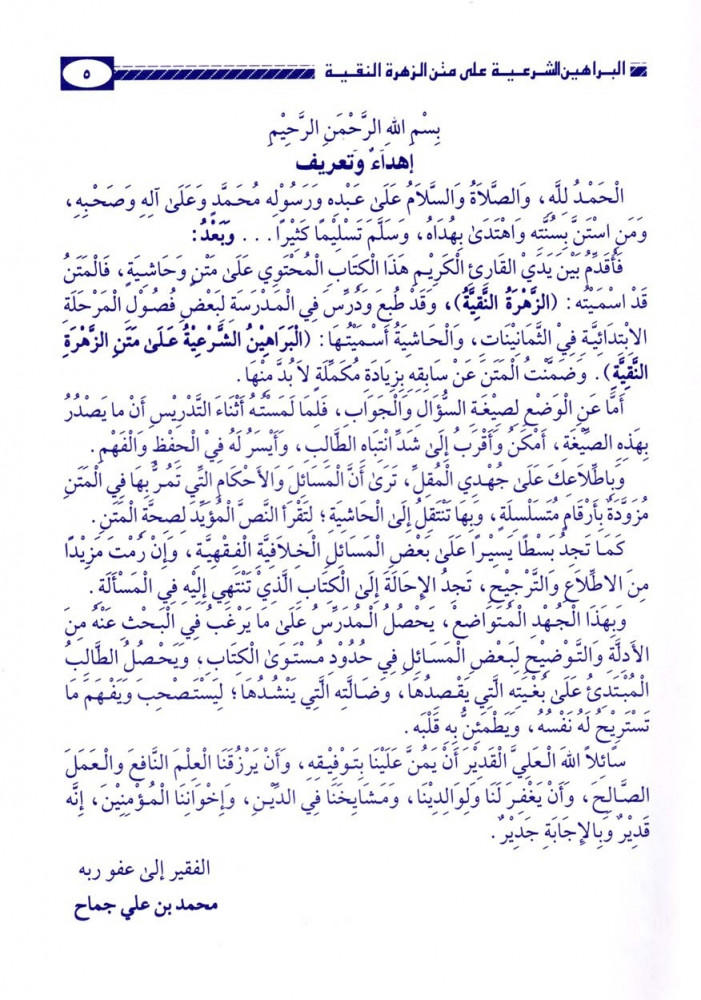 البراهين الشرعية على متن الزهرة النقية
٥
بِسْمِ اللهِ الرَّحْمَنِ الرَّحِيْمِ
إهداءٌ وَتعريف
الْحَمْدُ لِلَّهِ، وَالصَّلاَةُ وَالسَّلاَمُ عَلىَ عَبْدِه وَرَسُوْلِه مُحَمَّدٍ وَعَلىَ آلِهِ وَصَحْبِهِ،
وَمَنِ اسْتَنَّ بِسُنَّتِه وَاهْتَدَىَ بِهُدَاهُ، وَسَلَّمَ تَسْلِيْمًا كَثِيْرًا... وَبَعْدُ:
فَأُقَدِّمُ بَيْنَ يَدَيْ القَارِئِ الْكَرِيْمِ هَذَا الْكِتَابِ الْمُحْتَوِي عَلىَ مَتْنٍ وَحَاشِيَةٍ، فَالْمَتَنُ
قَدْ اسْمَيْتُه: (الزَّهْرَةُ النَّقِيَّةُ)، وَقَدْ طُبِعَ وَدُرِّسَ فِي الْمَدْرَسَةِ لِبَعْضِ فُصُوْلِ الْمَرْحَلَةِ
الاِبْتِدَائِيَّةِ فِيْ الثَّمَانِيْنَات، وَالْحَاشِيَةُ أَسْمَيْتُهَا: (الْبَرَاهِيْنُ الشَّرْعِيْةُ عَلىَ مَتَنِ الزَّهْرَةِ
النَّقِيَّةِ). وَضَمَّنْتُ الْمَتَنَ عَنْ سَابِقِهِ بِزِيَادَةٍ مُكَمِّلَةٍ لاَ بُدَّ مِنْهَا.
أَمَّا عَنِ الْوَضْعِ لِصِيْغَةِ السُّؤَالِ وَالْجَوَابِ، فَلِمَا لَمَسْتُهُ أَثْنَاءَ التَّدْرِيْسِ أَنْ مَا يَصْدُرُ
بِهَذِهِ الصِّيْغَةِ، أَمْكَنُ وَأَقْرَبُ إِلىَ شَدِّ انْتِبَاهِ الطَّالِبِ، وَأَيْسَرُ لَهُ فِيْ الْحِفْظِ وَالْفَهْمِ.
وَبِاطِّلاَعِكَ عَلىَ جُهْدِيْ الْمُقِلِّ، تَرَىَ أَنَّ الْمَسَائِلَ وَالأَحْكَامَ الَّتِي تَمُرُّ بِهَا فِي الْمَتَنِ
مُزَوَّدَةٌ بِأَرْقَامٍ مُتَسَلْسِلَةٍ، وَبِهَا تَنْتَقِلُ إِلىَ الْحَاشِيَةِ؛ لِتَقْرَأَ النَّصَّ الْمُؤَيِّدَ لِصِحَّةِ الْمَتَنِ.
كَمَا تَجِدُ بَسْطًا يَسِيْرًا عَلىَ بَعْضِ الْمَسَائِلِ الْخِلاَفِيَّةِ الْفِقْهِيَّةِ، وَإِنْ رُمْتَ مَزِيْدًا
مِنَ الاِطِّلاَعِ وَالتَّرْجِيْحِ، تَجِدُ الإِحَالَةَ إِلىَ الْكِتَابِ الَّذِيْ تَنْتَهِي إِلَيْهِ فِي الْمَسْأَلَةِ.
وَبِهَذَا الْجُهْدِ الْمُتَوَاضِعِ، يَحْصُلُ الْمُدَرِّسُ عَلىَ مَا يَرْغَبُ فِي الْبَحْثِ عَنْهُ مِنَ
الأَدِلَّةِ وَالتَّوْضِيْحِ لِبَعْضِ الْمَسَائِلِ فِي حُدُوْدِ مُسْتَوَىَ الْكِتَابِ، وَيَحْصُلُ الطَّالِبُ
الْمُبْتَدِئُ عَلىَ بُغْيَتِهِ الَّتِي يَقْصِدُهَا، وَضَالَّتِهِ الَّتِي يَنْشُدُهَا؛ لِيَسْتَصْحِبَ وَيَفْهَمَ مَا
تَسْتَرِيْحُ لَهُ نَفْسُهُ، وَيَطْمَئِنُّ بِهِ قَلْبُه.
سَائِلاً اللهَ الْعَلِيَّ الْقَدِيْرَ أَنْ يَمُنَّ عَلَيْنَا بِتَوْفِيْقِهِ، وَأَنْ يَرْزُقَنَا الْعِلْمَ النَّافِعَ وَالْعَمَلَ
الصَّالِحَ، وَأَنْ يَغْفِرَ لَنَا وَلِوَالِدِيْنَا، وَمَشَايِخَنَا فِي الدِّيْنِ، وَإِخْوَانِنَا الْمُؤْمِنِيْنَ، إِنَّه
قَدِيْرٌ وَبِالإِجَابَةِ جَدِيْرٌ.
الفقير إلىَ عفو ربه
محمد بن علي جماح